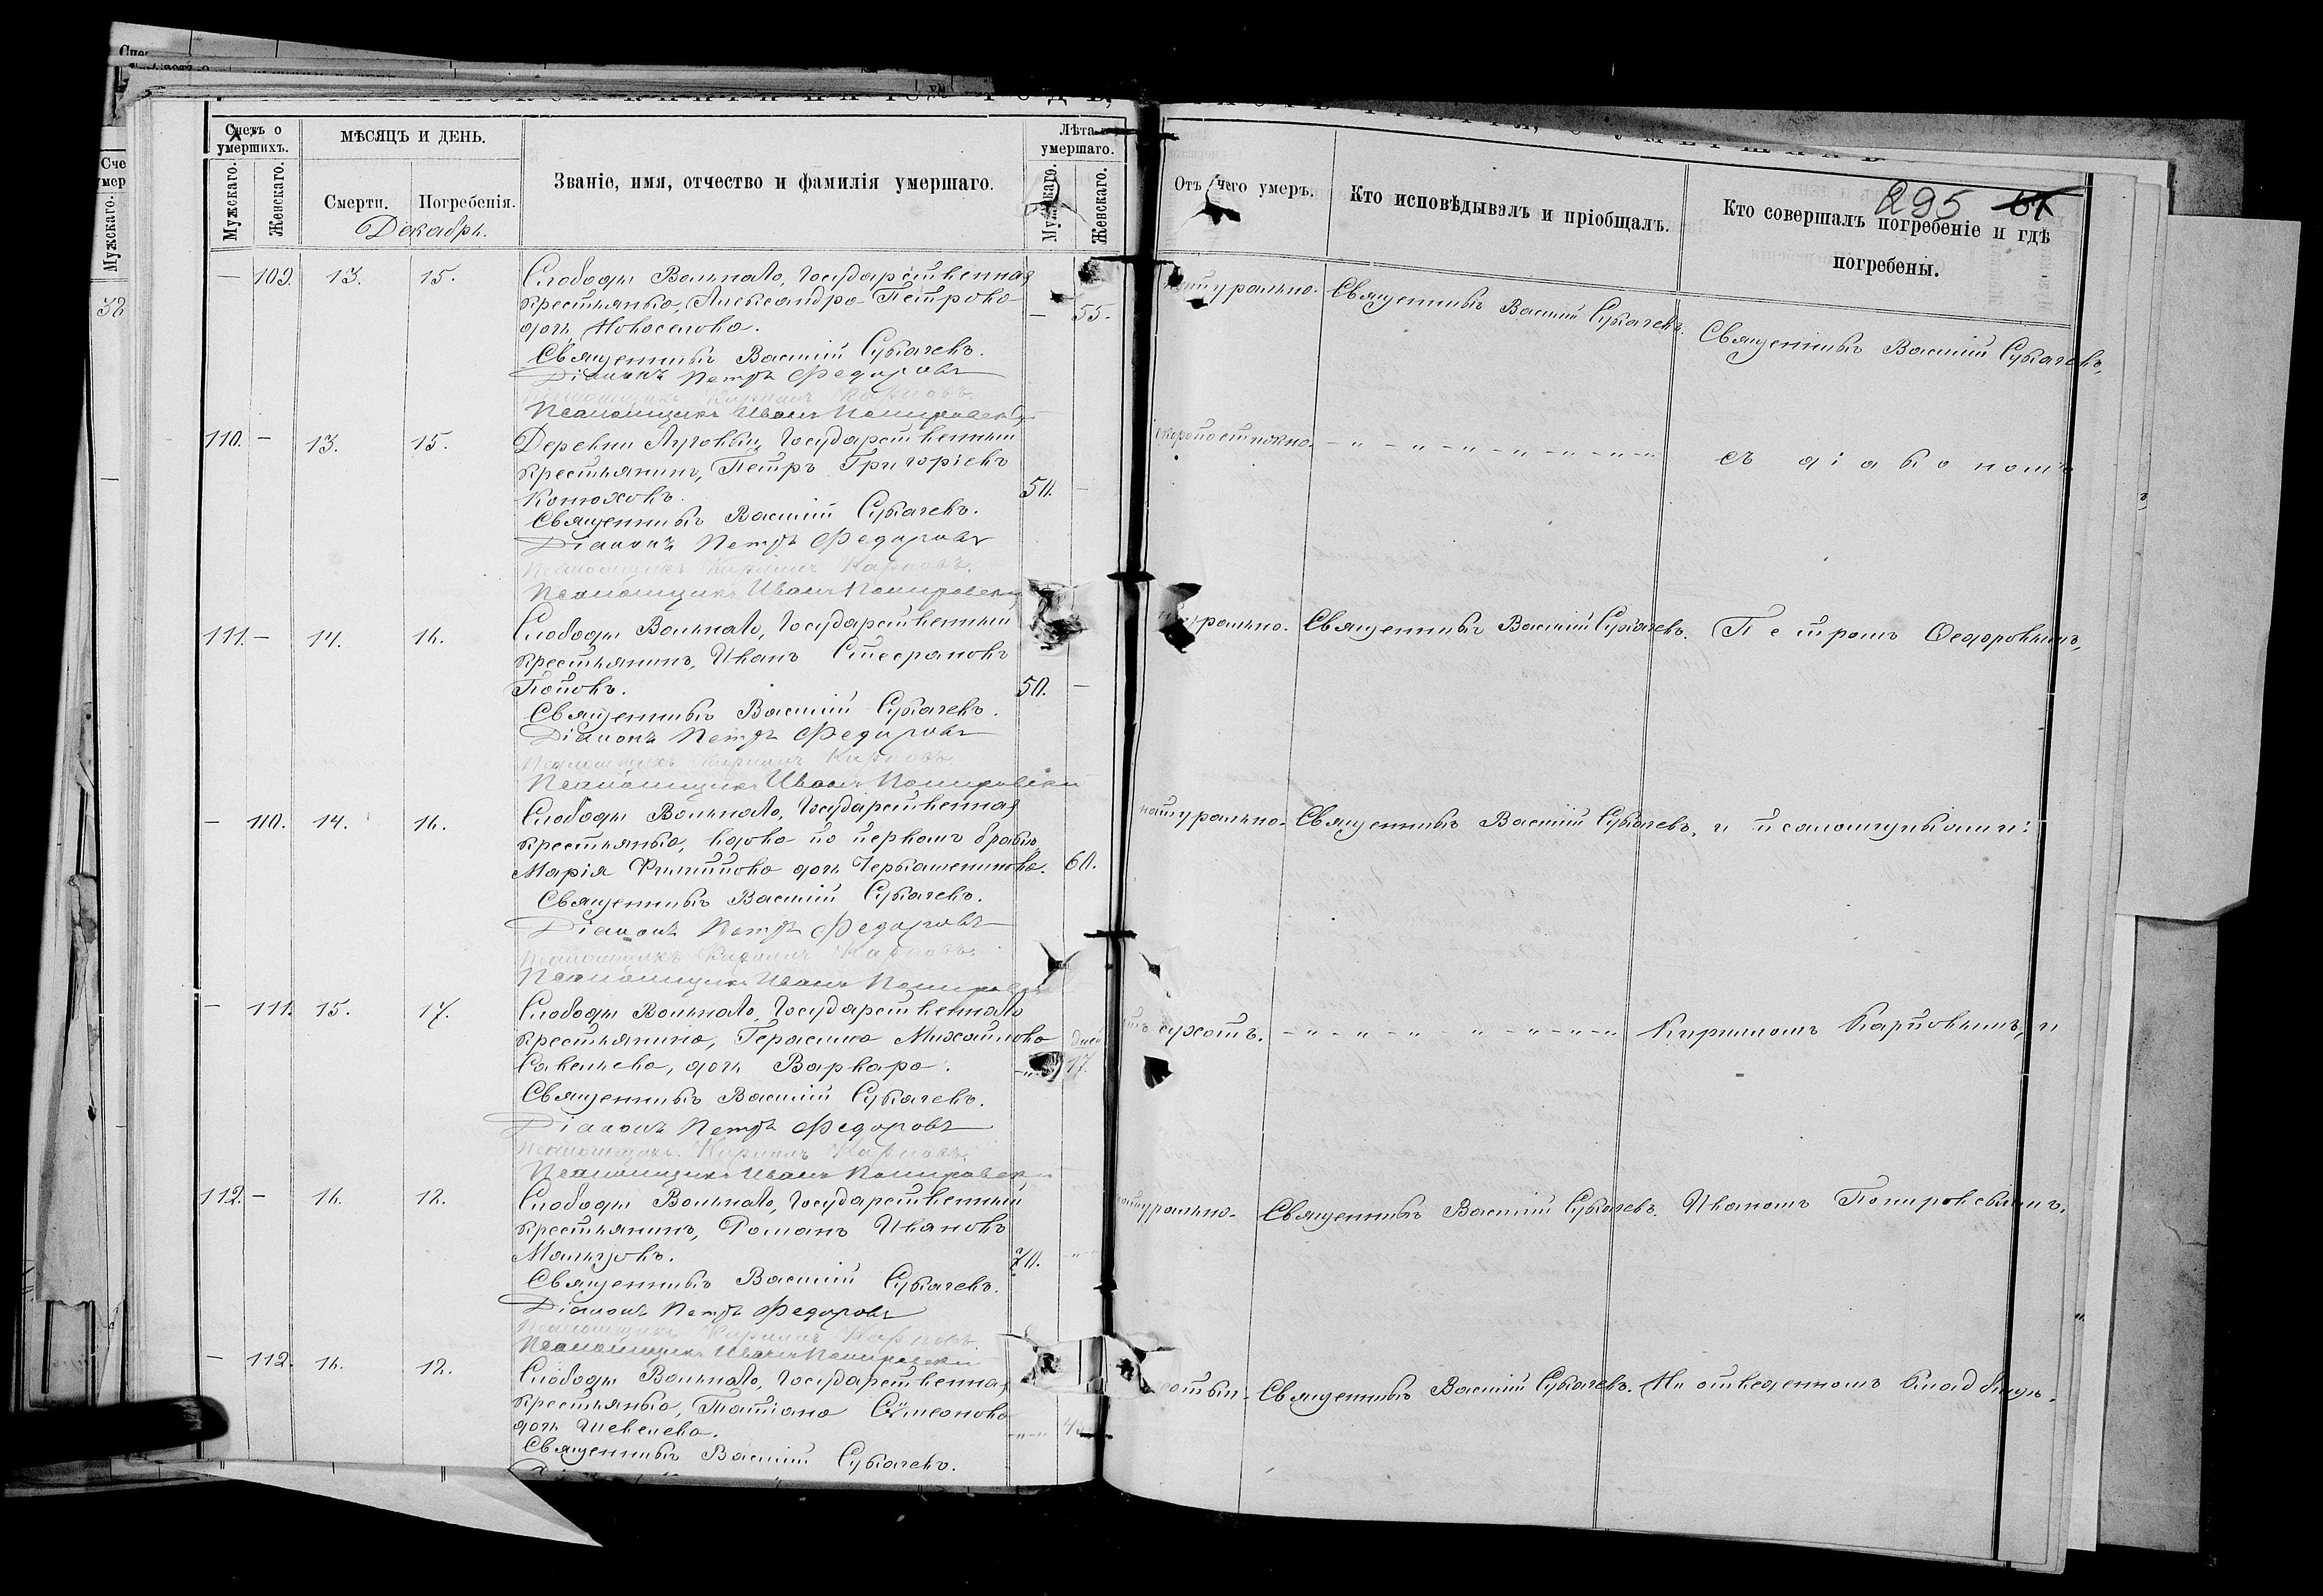 Счетъ о умершихъ.
МѢСЯЦЪ И ДЕНЬ.
Званіе, имя, отчество и фамилія умершаго.
Лѣта умершаго.
Мужскаго.
Женскаго.
Смерти.
Погребенія.
Мужскаго.
Женскаго.
Декабрь.
Отъ чего умеръ.
Кто исповѣдывалъ и пріобщалъ.
Кто совершалъ погребеніе и гдѣ
погребены.
295
— 109. 13. 15. Слободы Вольнаго, Государственная
крестьянка, Александра Петрова
дочь Новоселова. — 55.
Священникъ Василій Сукачевъ.
Діаконъ Петръ Федоровъ
Псаломщикъ Кириллъ Карповъ.
Псаломщикъ Иванъ
натурально. Священникъ Василій Сукачевъ. Священникъ Василій Сукачевъ,
110. — 13. 15. Деревни Луговки, Государственный
крестьянинъ, Петръ Григоріевъ
Котюховъ. 50. —
Священникъ Василій Сукачевъ.
Діаконъ Петръ Федоровъ
Псаломщикъ Кириллъ Карповъ.
Псаломщикъ Иванъ
скоропостижно. съ діакономъ
111. — 14. 16. Слободы Вольнаго, Государственный
крестьянинъ, Иванъ Стефановъ
Поповъ. 50. —
Священникъ Василій Сукачевъ.
Діаконъ Петръ Федоровъ
Псаломщикъ Кириллъ Карповъ
Псаломщикъ Иванъ
Священникъ Василій Сукачевъ. Петромъ Ѳедоровымъ,
— 110. 14. 16. Слободы Вольнаго, Государственная
крестьянка, вдова по первомъ бракѣ,
Марія Филиппова дочь Черкашенинова. 60.
Священникъ Василій Сукачевъ.
Діаконъ Петръ Федоровъ
Псаломщикъ Кириллъ Карповъ.
Псаломщикъ Иванъ
натурально. Священникъ Василій Сукачевъ. и псаломщиками:
— 111. 15. 17. Слободы Вольнаго, Государственнаго
крестьянина, Герасима Михайлова
Савельева, дочь Варвара. дней 17.
Священникъ Василій Сукачевъ.
Діаконъ Петръ Федоровъ
Псаломщикъ Кириллъ Карповъ.
Псаломщикъ Иванъ
сухотъ. Кирилломъ Карповымъ, и
112. — 16. 18. Слободы Вольнаго, Государственный
крестьянинъ, Романъ Ивановъ
70.
Священникъ Василій Сукачевъ.
Діаконъ Петръ Федоровъ
Псаломщикъ Кириллъ Карповъ.
Псаломщикъ Иванъ
натурально. Священникъ Василій Сукачевъ. Иваномъ
— 112. 16. 18. Слободы Вольнаго, Государственная
крестьянка, Татіана Сѵмеонова
дочь Шевелева.
Священникъ Василій Сукачевъ.
Священникъ Василій Сукачевъ. На отведенномъ кладбищѣ.